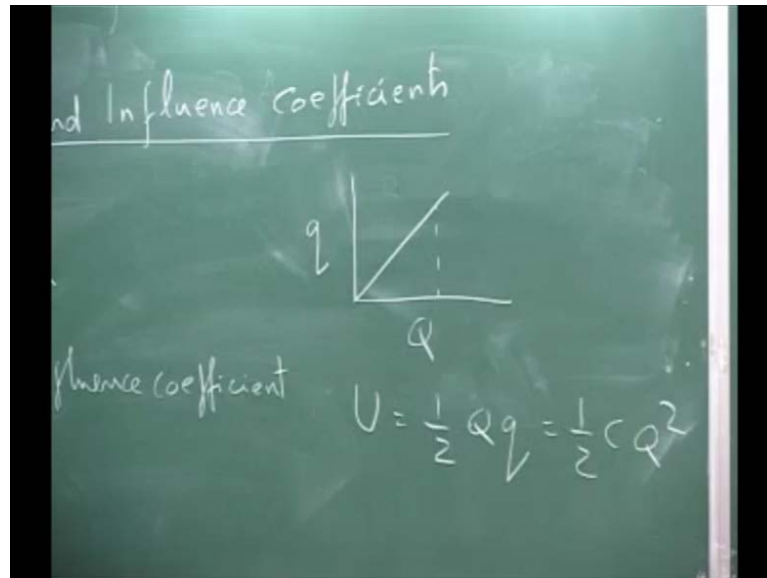 nd Influence Coefficients
q
Q
fluence coefficient
U = 1/2 Q q = 1/2 C Q²